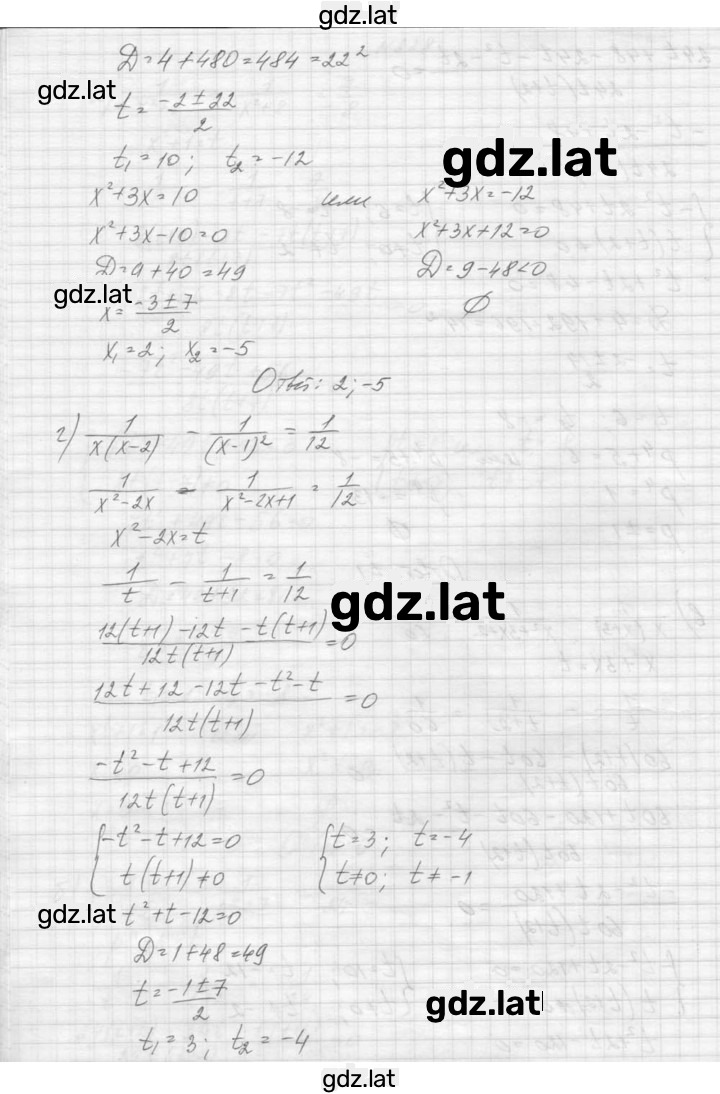 gdz.lat
D=4+480=484=22²
gdz.lat
t=(-2±22)/2
t₁=10; t₂=-12
gdz.lat
x²+3x=10 или x²+3x=-12
x²+3x-10=0 x²+3x+12=0
D=9+40=49 D=9-48<0
gdz.lat
x=(-3±7)/2 Ø
x₁=2; x₂=-5
Ответ: 2; -5
г) 1/(x(x-2)) - 1/(x-1)² = 1/12
1/(x²-2x) - 1/(x²-2x+1) = 1/12
x²-2x=t
1/t - 1/(t+1) = 1/12
gdz.lat
(12(t+1)-12t-t(t+1))/(12t(t+1))=0
(12t+12-12t-t²-t)/(12t(t+1))=0
(-t²-t+12)/(12t(t+1))=0
{-t²-t+12=0 {t=3; t=-4
t(t+1)≠0 t≠0; t≠-1
gdz.lat
t²+t-12=0
D=1+48=49
t=(-1±7)/2
gdz.lat
t₁=3; t₂=-4
gdz.lat